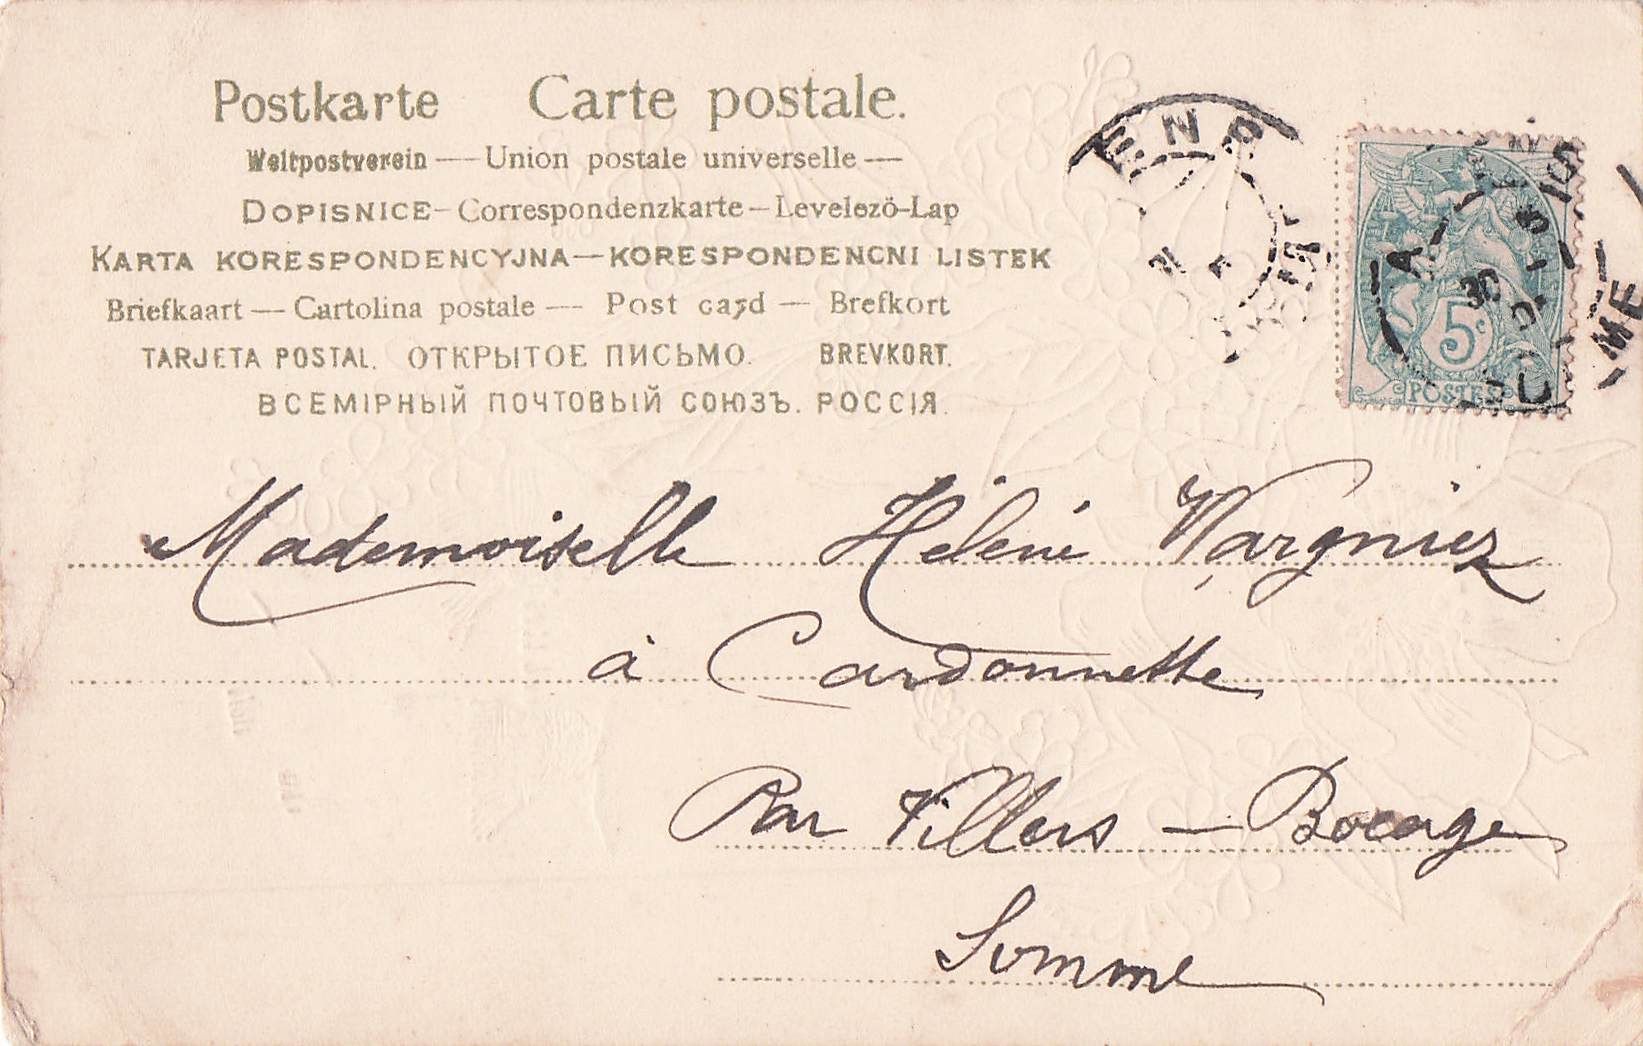 Postkarte Carte postale.
Weltpostverein — Union postale universelle —
DOPISNICE – Correspondenzkarte – Levelező-Lap
KARTA KORESPONDENCYJNA — KORESPONDENCNI LISTEK
Briefkaart — Cartolina postale — Post card — Brefkort
TARJETA POSTAL. ОТКРЫТОЕ ПИСЬМО. BREVKORT.
ВСЕМІРНЫЙ ПОЧТОВЫЙ СОЮЗЪ. РОССІЯ.
5c
POSTES
Mademoiselle Hélène Wargniez
à Cardonnette
Par Villers - Bocage
Somme